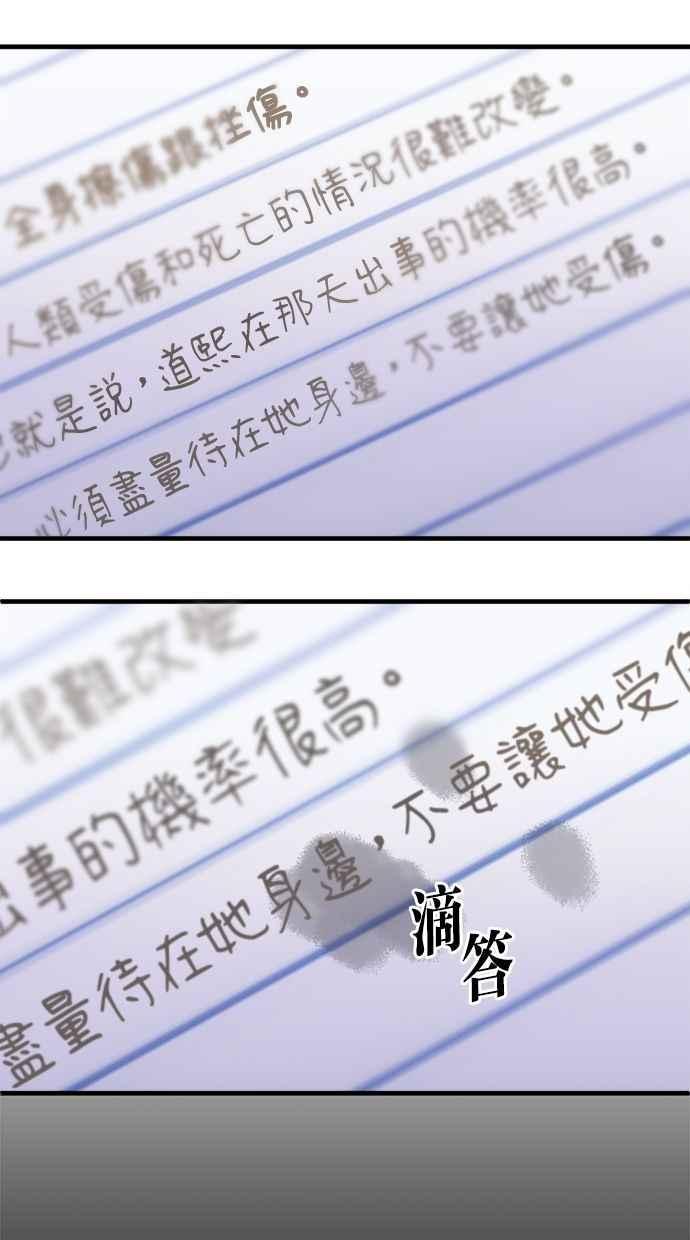 全身擦傷跟挫傷。
人類受傷和死亡的情況很難改變。
就是說，道熙在那天出事的機率很高。
必須盡量待在她身邊，不要讓她受傷。
很難改變
出事的機率很高。
盡量待在她身邊，不要讓她受傷
滴答